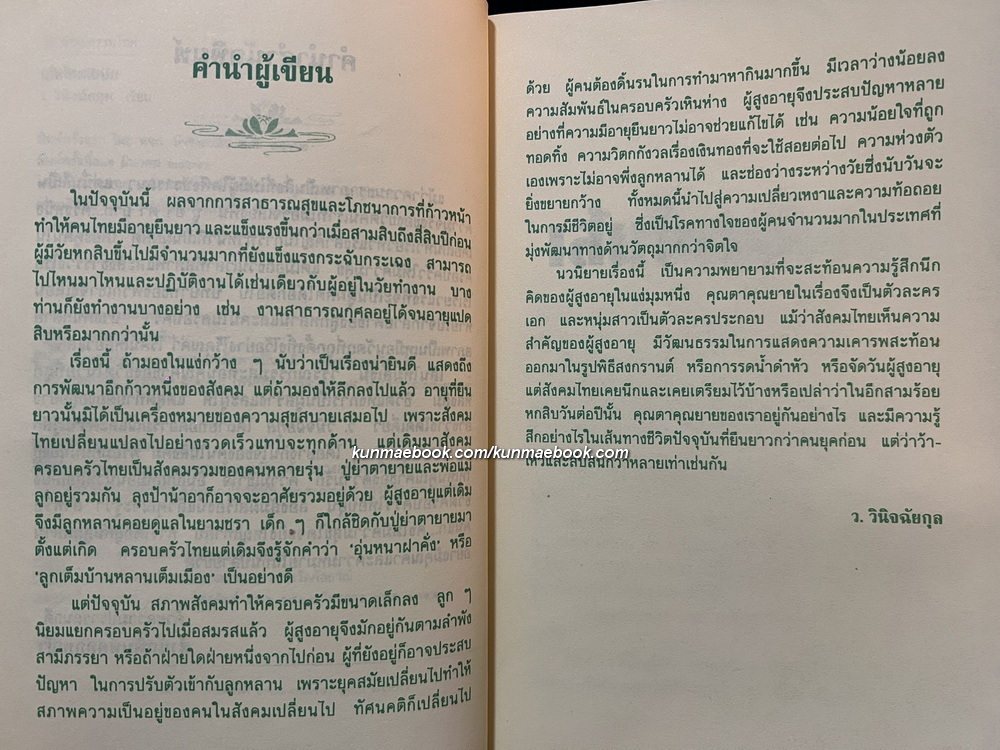 คำนำผู้เขียน
ในปัจจุบันนี้ ผลจากการสาธารณสุขและโภชนาการที่ก้าวหน้า
ทำให้คนไทยมีอายุยืนยาว และแข็งแรงขึ้นกว่าเมื่อสามสิบถึงสี่สิบปีก่อน
ผู้มีวัยหกสิบขึ้นไปมีจำนวนมากที่ยังแข็งแรงกระฉับกระเฉง สามารถ
ไปไหนมาไหนและปฏิบัติงานได้เช่นเดียวกับผู้อยู่ในวัยทำงาน บาง
ท่านก็ยังทำงานบางอย่าง เช่น งานสาธารณกุศลอยู่ได้จนอายุแปด
สิบหรือมากกว่านั้น
เรื่องนี้ ถ้ามองในแง่กว้าง ๆ นับว่าเป็นเรื่องน่ายินดี แสดงถึง
การพัฒนาอีกก้าวหนึ่งของสังคม แต่ถ้ามองให้ลึกลงไปแล้ว อายุที่ยืน
ยาวนั้นมิได้เป็นเครื่องหมายของความสุขสบายเสมอไป เพราะสังคม
ไทยเปลี่ยนแปลงไปอย่างรวดเร็วแทบจะทุกด้าน แต่เดิมมาสังคม
ครอบครัวไทยเป็นสังคมรวมของคนหลายรุ่น ปู่ย่าตายายและพ่อแม่
ลูกอยู่รวมกัน ลุงป้าน้าอาก็อาจจะอาศัยรวมอยู่ด้วย ผู้สูงอายุแต่เดิม
จึงมีลูกหลานคอยดูแลในยามชรา เด็ก ๆ ก็ใกล้ชิดกับปู่ย่าตายายมา
ตั้งแต่เกิด ครอบครัวไทยแต่เดิมจึงรู้จักคำว่า ‘อุ่นหนาฝาคั่ง’ หรือ
‘ลูกเต็มบ้านหลานเต็มเมือง’ เป็นอย่างดี
แต่ปัจจุบัน สภาพสังคมทำให้ครอบครัวมีขนาดเล็กลง ลูก ๆ
นิยมแยกครอบครัวไปเมื่อสมรสแล้ว ผู้สูงอายุจึงมักอยู่กันตามลำพัง
สามีภรรยา หรือถ้าฝ่ายใดฝ่ายหนึ่งจากไปก่อน ผู้ที่ยังอยู่ก็อาจประสบ
ปัญหา ในการปรับตัวเข้ากับลูกหลาน เพราะยุคสมัยเปลี่ยนไปทำให้
สภาพความเป็นอยู่ของคนในสังคมเปลี่ยนไป ทัศนคติก็เปลี่ยนไป
ด้วย ผู้คนต้องดิ้นรนในการทำมาหากินมากขึ้น มีเวลาว่างน้อยลง
ความสัมพันธ์ในครอบครัวเหินห่าง ผู้สูงอายุจึงประสบปัญหาหลาย
อย่างที่ความมีอายุยืนยาวไม่อาจช่วยแก้ไขได้ เช่น ความน้อยใจที่ถูก
ทอดทิ้ง ความวิตกกังวลเรื่องเงินทองที่จะใช้สอยต่อไป ความห่วงตัว
เองเพราะไม่อาจพึ่งลูกหลานได้ และช่องว่างระหว่างวัยซึ่งนับวันจะ
ยิ่งขยายกว้าง ทั้งหมดนี้นำไปสู่ความเปลี่ยวเหงาและความท้อถอย
ในการมีชีวิตอยู่ ซึ่งเป็นโรคทางใจของผู้คนจำนวนมากในประเทศที่
มุ่งพัฒนาทางด้านวัตถุมากกว่าจิตใจ
นวนิยายเรื่องนี้ เป็นความพยายามที่จะสะท้อนความรู้สึกนึก
คิดของผู้สูงอายุในแง่มุมหนึ่ง คุณตาคุณยายในเรื่องจึงเป็นตัวละคร
เอก และหนุ่มสาวเป็นตัวละครประกอบ แม้ว่าสังคมไทยเห็นความ
สำคัญของผู้สูงอายุ มีวัฒนธรรมในการแสดงความเคารพสะท้อน
ออกมาในรูปพิธีสงกรานต์ หรือการรดน้ำดำหัว หรือจัดวันผู้สูงอายุ
แต่สังคมไทยเคยนึกและเคยเตรียมไว้บ้างหรือเปล่าว่าในอีกสามร้อย
หกสิบวันต่อปีนั้น คุณตาคุณยายของเราอยู่กันอย่างไร และมีความรู้
สึกอย่างไรในเส้นทางชีวิตปัจจุบันที่ยืนยาวกว่าคนยุคก่อน แต่ว่าว้า-
เหว่และสับสนกว่าหลายเท่าเช่นกัน
ว. วินิจฉัยกุล
kunmaebook.com/kunmaebook.com